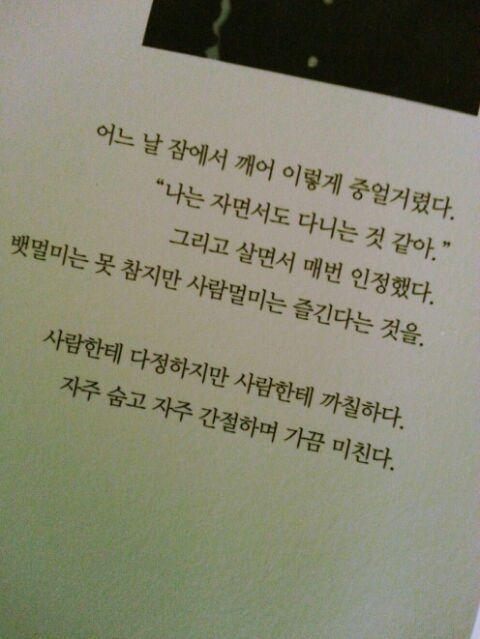 어느 날 잠에서 깨어 이렇게 중얼거렸다.
“나는 자면서도 다니는 것 같아.”
그리고 살면서 매번 인정했다.
뱃멀미는 못 참지만 사람멀미는 즐긴다는 것을.
사람한테 다정하지만 사람한테 까칠하다.
자주 숨고 자주 간절하며 가끔 미친다.